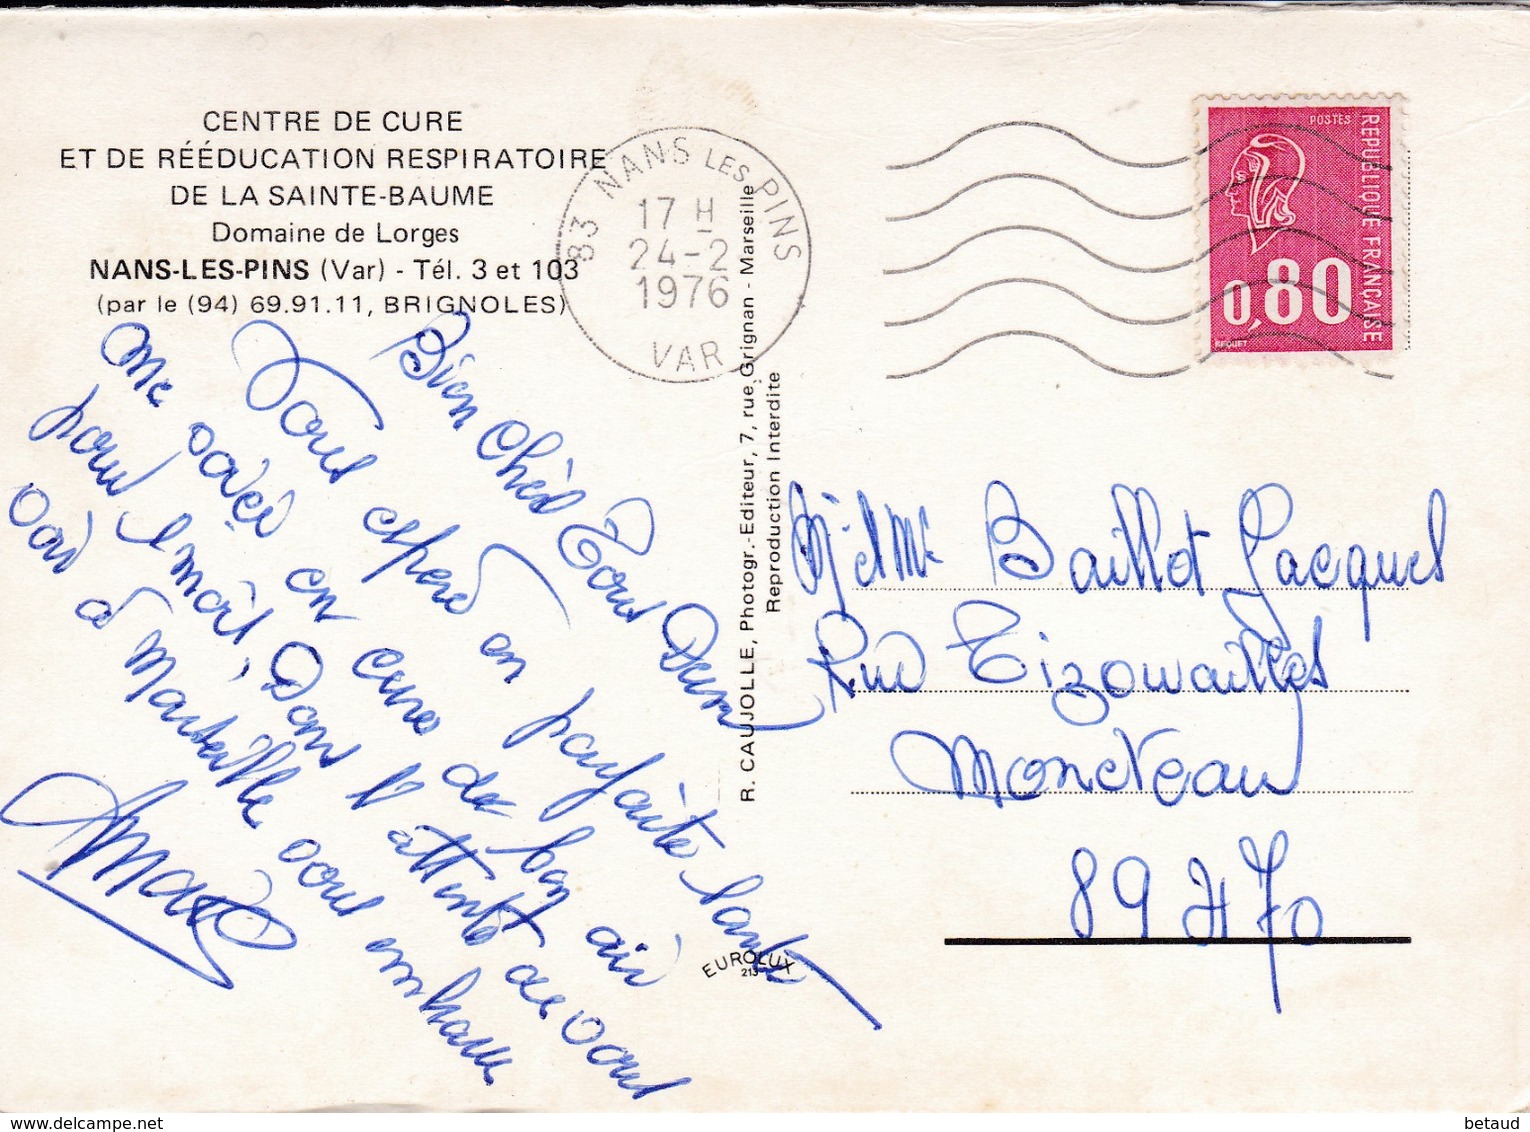 CENTRE DE CURE
ET DE RÉÉDUCATION RESPIRATOIRE
DE LA SAINTE-BAUME
Domaine de Lorges
NANS-LES-PINS (Var) - Tél. 3 et 103
(par le (94) 69.91.11, BRIGNOLES)
83 NANS LES PINS
17 H
24-2
1976
VAR
POSTES
REPUBLIQUE FRANCAISE
0,80
BEQUET
Bien Chèrs Tous Deux
Vous espère en parfaite santé
me voici en cure de bon air
pour 1 mois, Dans l'attente de vous
voir à Marseille vous embrasse
R. CAUJOLLE, Photogr.-Editeur, 7, rue Grignan - Marseille
Reproduction Interdite
EUROLUX
213
Mr et Mme Baillot Jacques
Rue Tizouailles
Moneteau
89470
www.delcampe.net
betaud